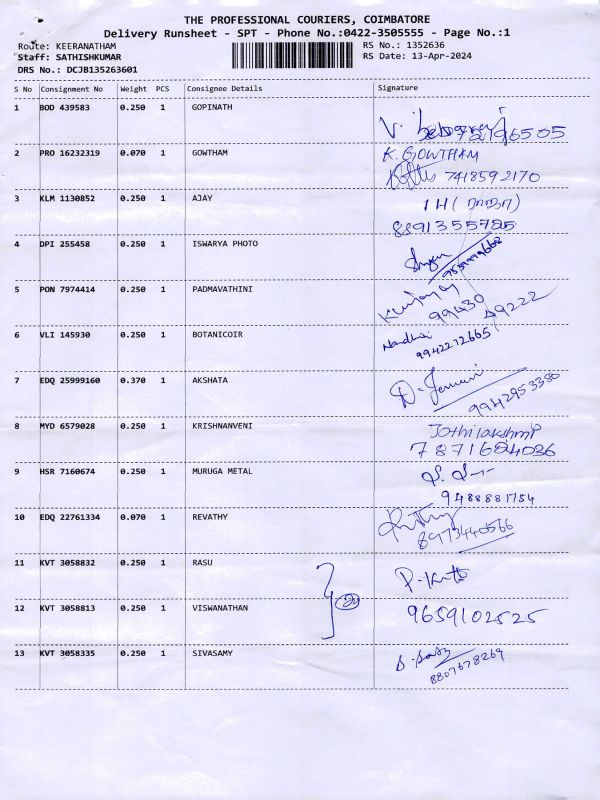 THE PROFESSIONAL COURIERS, COIMBATORE
Delivery Runsheet - SPT - Phone No.:0422-3505555 - Page No.:1
Route: KEERANATHAM
RS No.: 1352636
Staff: SATHISHKUMAR
RS Date: 13-Apr-2024
DRS No.: DCJB135263601
S No Consignment No Weight PCS Consignee Details Signature
1 BOD 439583 0.250 1 GOPINATH
2 PRO 16232319 0.070 1 GOWTHAM K. GOWTHAM
7418592170
3 KLM 1130852 0.250 1 AJAY 1H (ராஜா)
8891355785
4 DPI 255458 0.250 1 ISWARYA PHOTO
5 PON 7974414 0.250 1 PADMAVATHINI
99430 49222
6 VLI 145930 0.250 1 BOTANICOIR Nandhini
9942272665
7 EDQ 25999160 0.370 1 AKSHATA
9942953380
8 MYD 6579028 0.250 1 KRISHNANVENI Jothilakshmi P
7871684036
9 HSR 7160674 0.250 1 MURUGA METAL
9488881754
10 EDQ 22761334 0.070 1 REVATHY
8973440566
11 KVT 3058832 0.250 1 RASU
12 KVT 3058813 0.250 1 VISWANATHAN 9659102525
13 KVT 3058335 0.250 1 SIVASAMY
8807678269